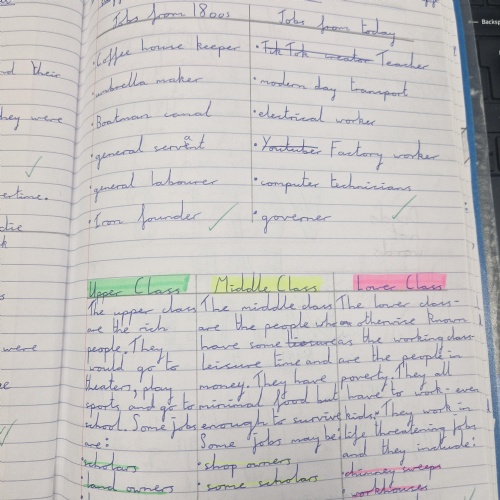 Jobs from 1800s
Jobs from today
nd their
hey were
ertime.
k
were
Coffee house keeper
umbrella maker
Boatman canal
general servant
general labourer
Iron founder
TikTok creator Teacher
modern day transport
electrical worker
Youtuber Factory worker
computer technicians
governer
Upper Class
The upper class
are the rich
people. They
would go to
theaters, play
sports and go to
school. Some jobs
are:
scholars
land owners
Middle Class
The middle class
are the people who
have some
leisure time and
money. They have
minimal food but
enough to survive
Some jobs may be:
shop owners
some scholars
Lower Class
The lower class-
otherwise known
as the working class-
are the people in
poverty. They all
have to work - even
kids. They work in
life threatening jobs
and they include:
chimney sweeps
workhouses
Backsp